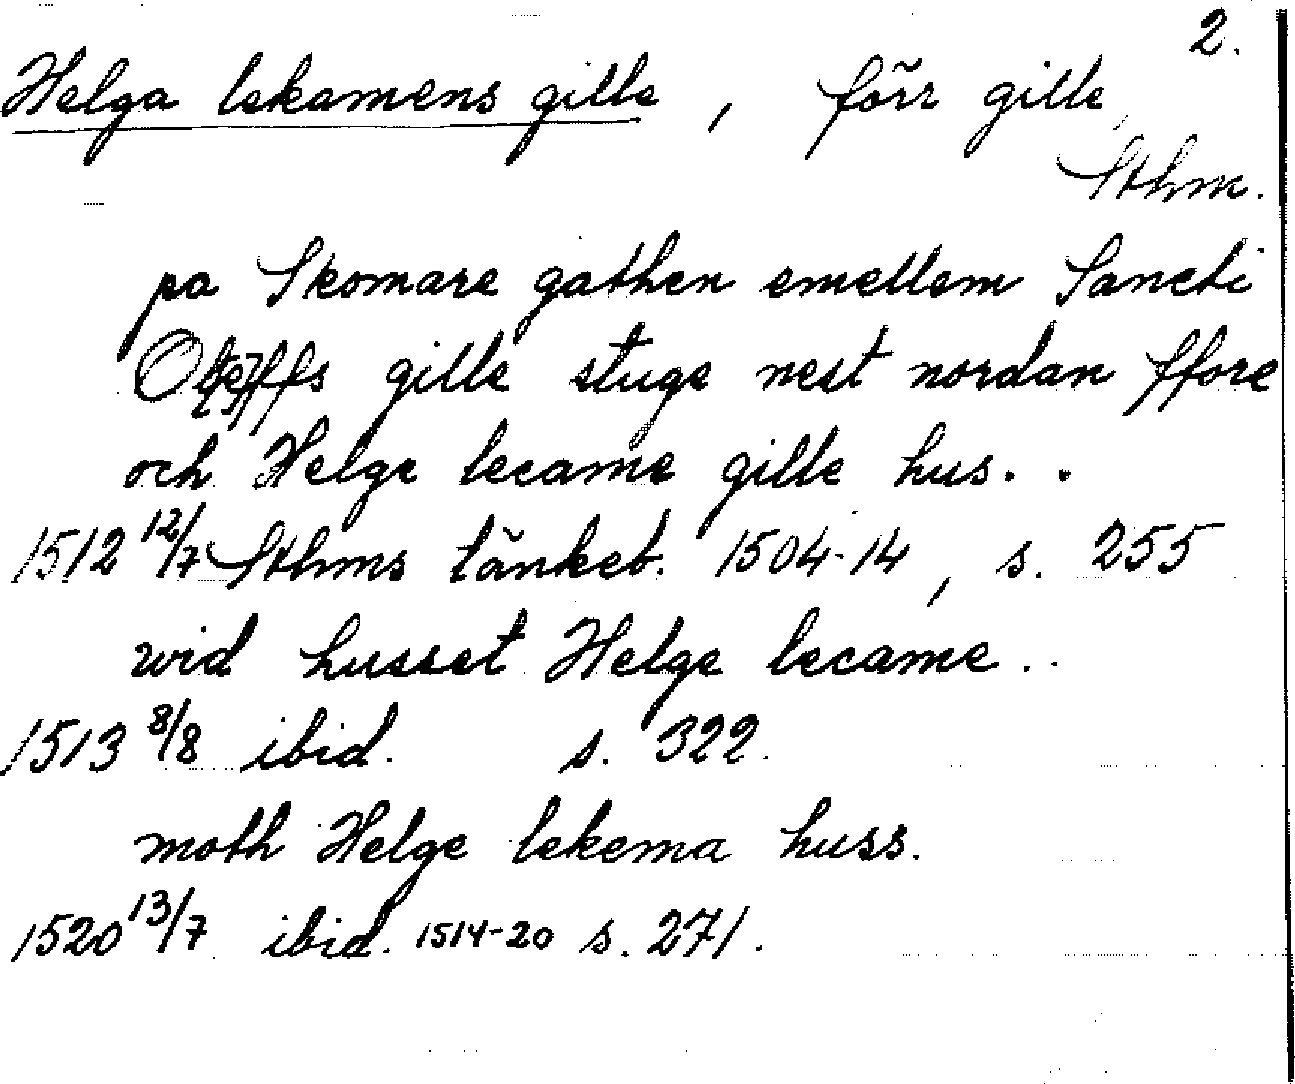 2.
Helga lekamens gille, förr gille,
Sthm.
pa Skomare gathen emellem Sancti
Oleffs gille stuge nest nordan ffore
och Helge lecame gille hus. .
1512 12/7 Sthms tänkeb. 1504-14, s. 255
wid husset Helge lecame . .
1513 8/8 ibid. s. 322.
moth Helge lekema huss.
1520 13/7 ibid. 1514-20 s. 271.